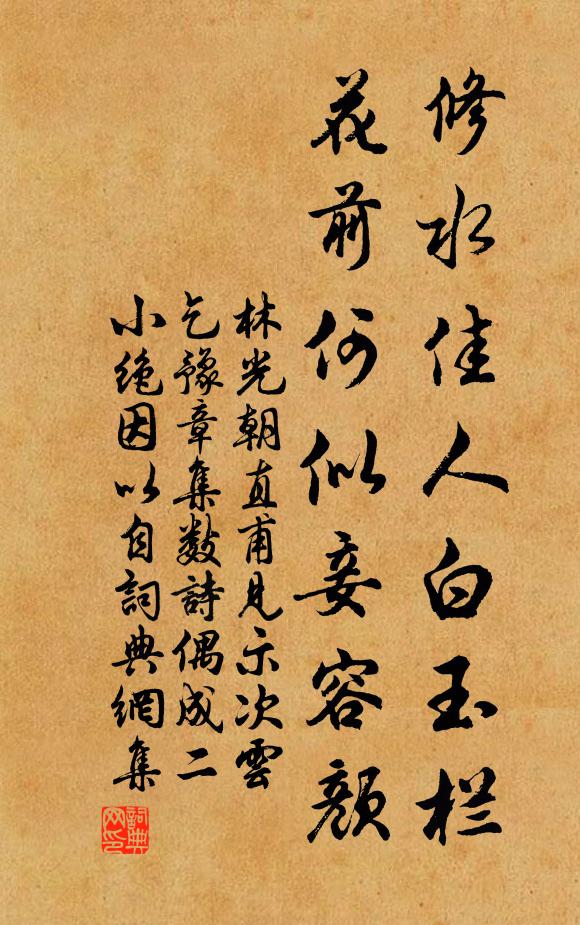 修水佳人白玉栏
花前何似妾容颜
林光朝直甫見示次雲
乞豫章集数詩偶成二
小绝因以自詞典網集
詞典
网印